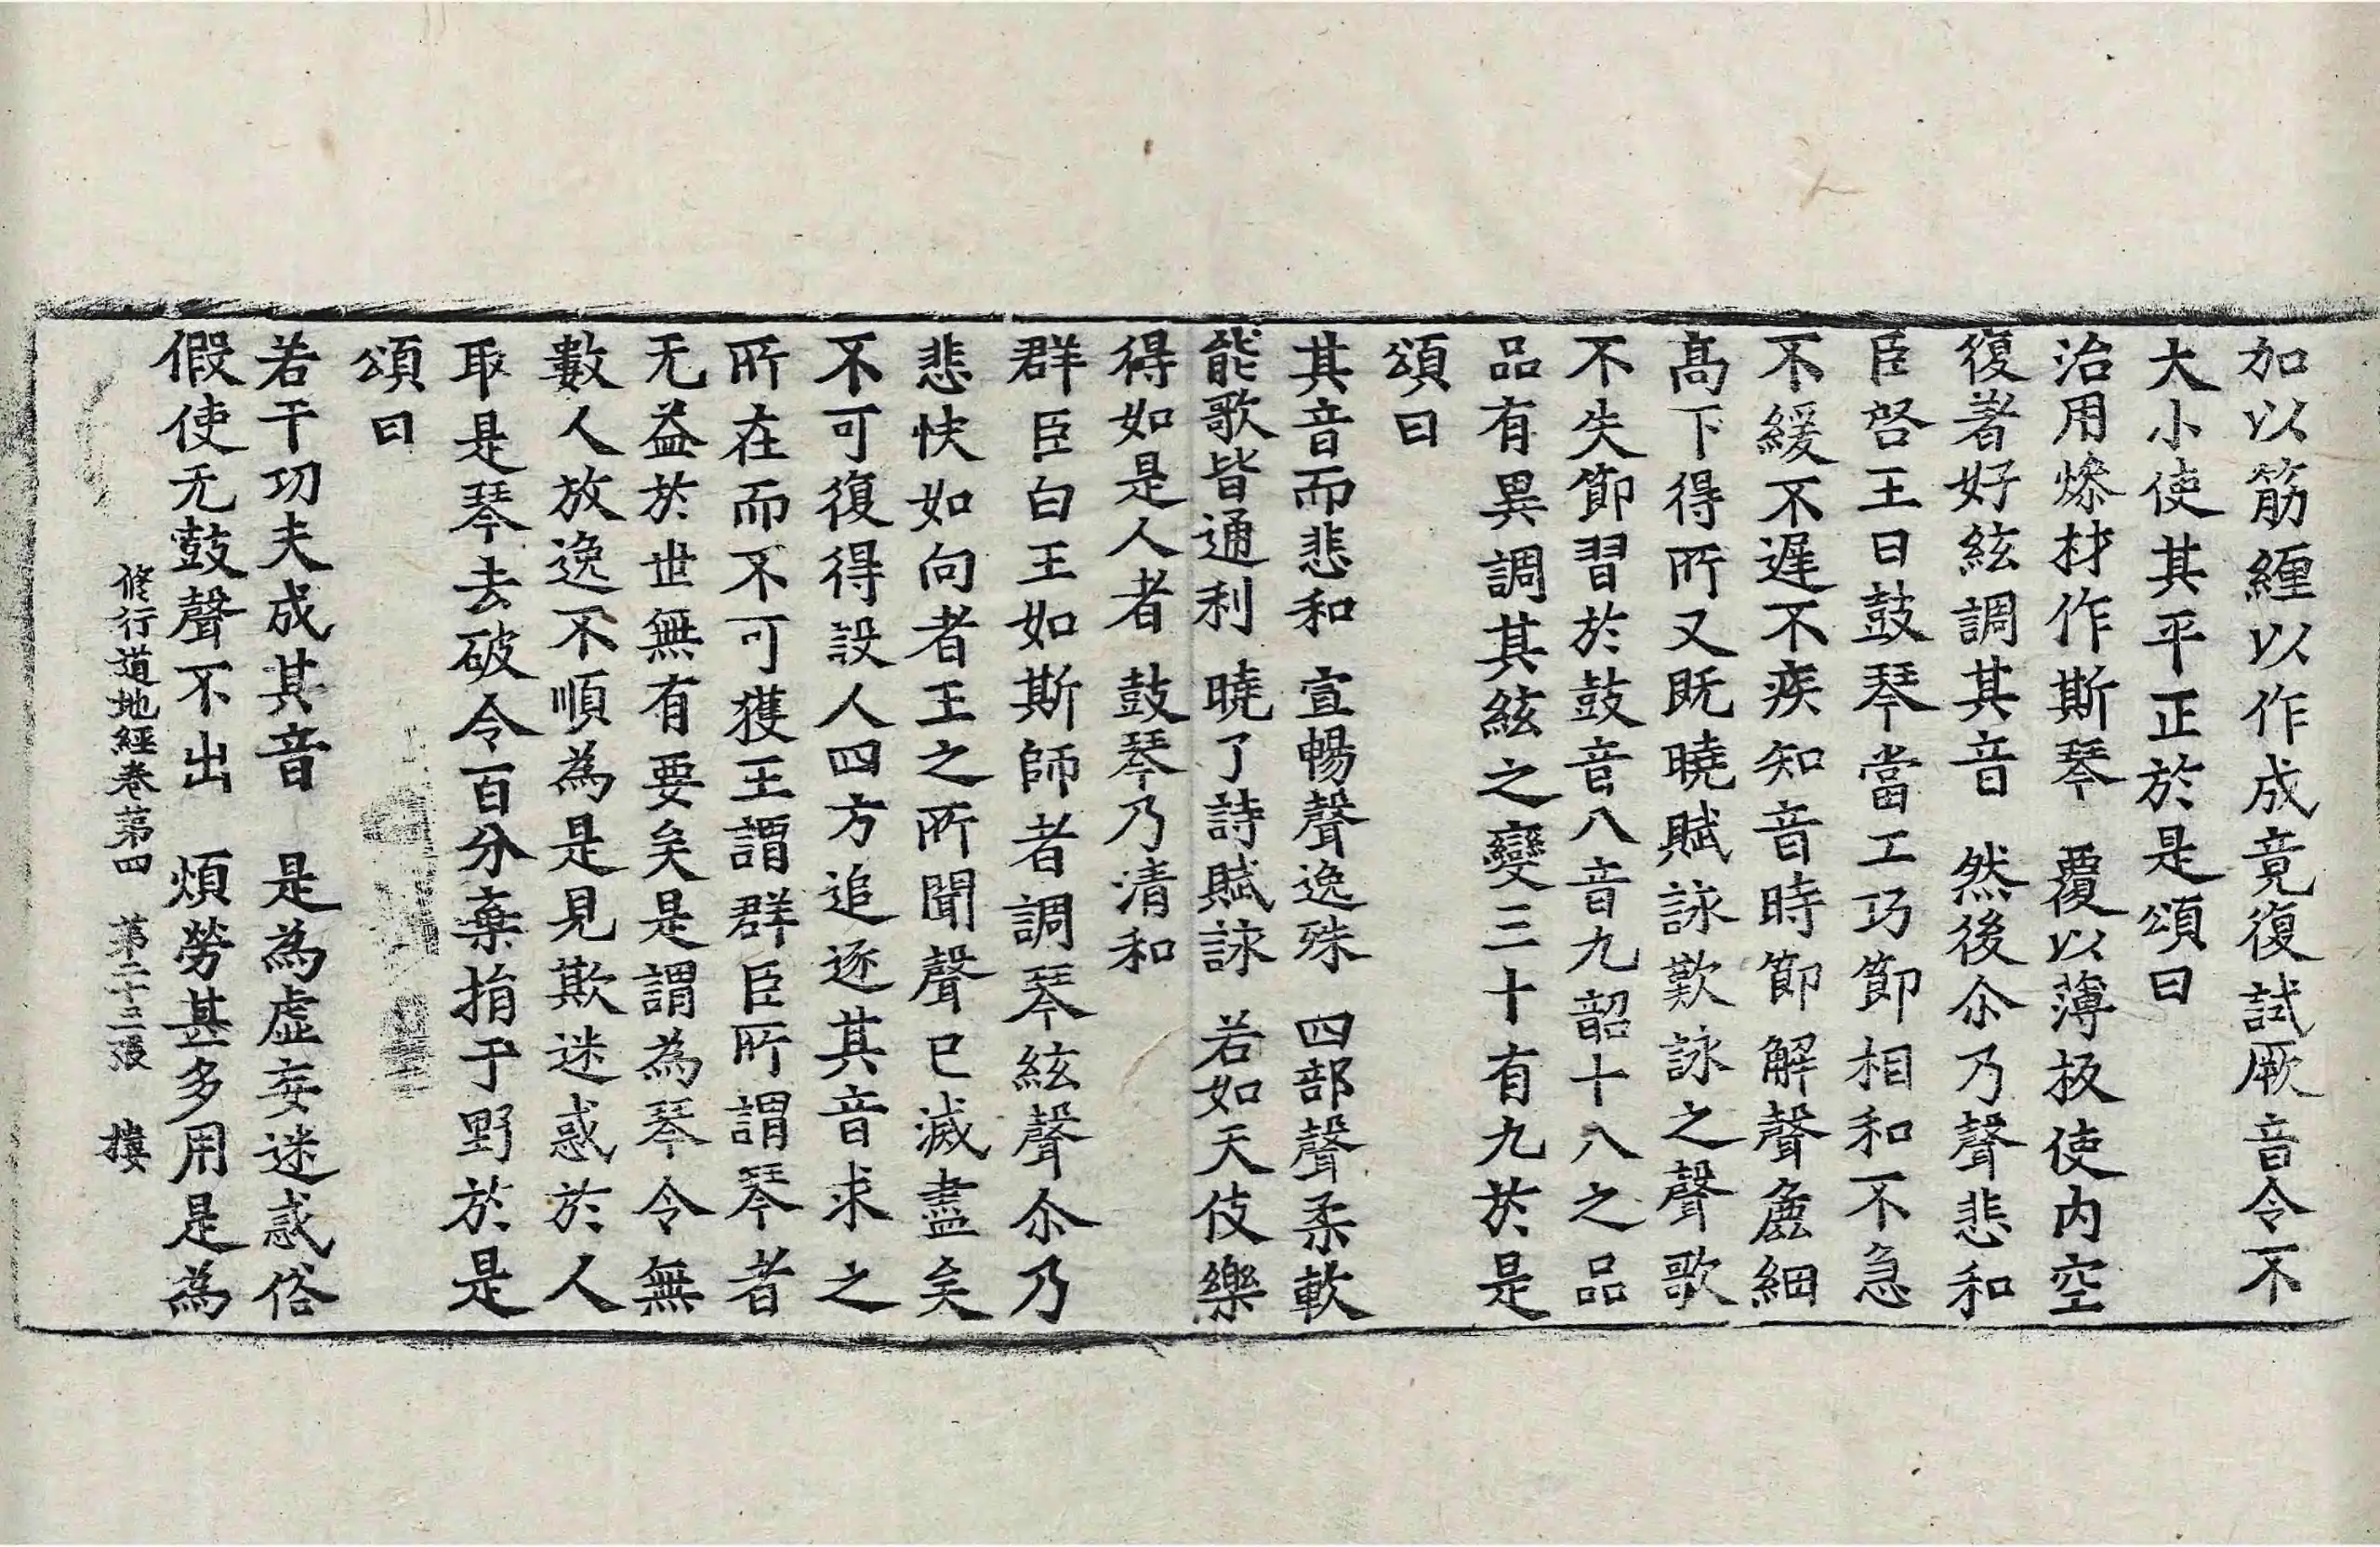 加以筋纏以作成竟復試厥音令不
大小使其平正於是頌曰
治用燥材作斯琴　覆以薄板使内空
復著好絃調其音　然後尒乃聲悲和
臣啓王曰鼓琴當工巧節相和不急
不緩不遲不疾知音時節解聲麁細
髙下得所又既曉賦詠歎詠之聲歌
不失節習於鼓音八音九韶十八之品
品有異調其絃之變三十有九於是
頌曰
其音而悲和　宣暢聲逸殊　四部聲柔軟
能歌皆通利　曉了詩賦詠　若如天伎樂
得如是人者　鼓琴乃清和
群臣白王如斯師者調琴絃聲尒乃
悲快如向者王之所聞聲已滅盡矣
不可復得設人四方追逐其音求之
所在而不可獲王謂群臣所謂琴者
无益於世無有要矣是謂為琴令無
數人放逸不順為是見欺迷惑於人
取是琴去破令百分棄捐于野於是
頌曰
若干功夫成其音　是為虛妄迷惑俗
假使无鼓聲不出　煩勞甚多用是為
修行道地經卷苐四　苐二十三張　樓